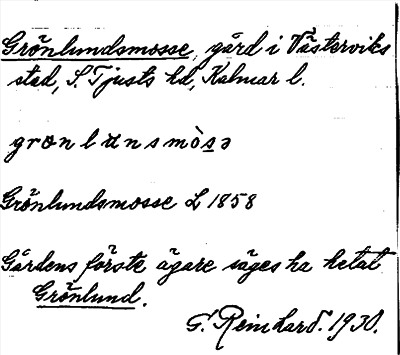 Grönlundsmosse, gård i Västerviks
stad, S. Tjusts hd, Kalmar l.
grœnlɯnsmòsə
Grönlundsmosse L 1858
Gårdens förste ägare säges ha hetat
Grönlund.
G. Reinhard. 1930.